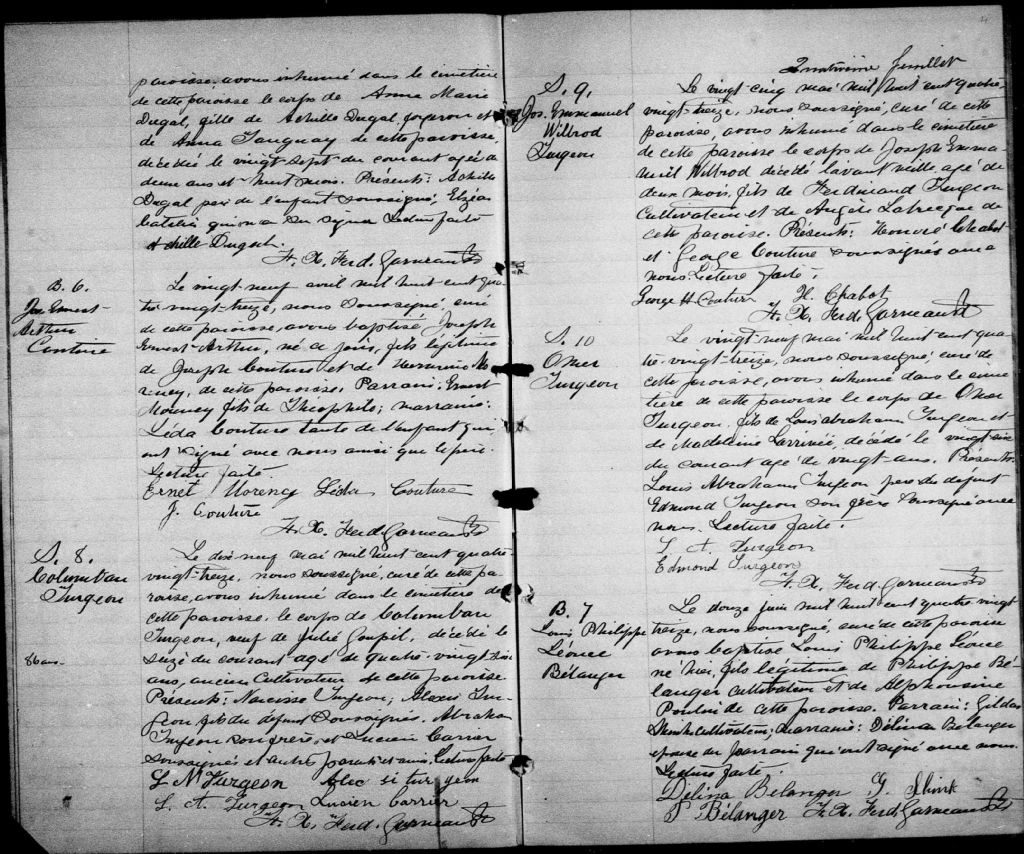 paroisse, avons inhumé dans le cimetière
de cette paroisse le corps de Anna Marie
Dugal, fille de Achille Dugal forgeron et
de Anna Tanguay de cette paroisse,
décédée le vingt sept du courant agé de
deux ans et huit mois. Présents: Achille
Dugal père de l'enfant soussigné, Elzéar
qui n'a su signer Lecture faite
Achille Dugal.
F. X. Ferd. Garneau Ptre
B. 6.
Jos. Ernest
Arthur
Couture
Le vingt-neuf avril mil huit cent qua-
tre-vingt-treize, nous soussigné, curé
de cette paroisse, avons baptisé Joseph
Ernest-Arthur, né ce jour, fils légitime
de Joseph Couture et de
de cette paroisse. Parrain: Ernest
fils de Théophile; marraine:
Léda Couture tante de l'enfant qui,
ont signé avec nous ainsi que le père.
Lecture faite
Ernet Morency Léda Couture
J. Couture
F. X. Ferd. Garneau Ptre
S. 8.
Colomban
Turgeon
86 ans
Le dix-neuf mai mil huit cent quatre-
vingt-treize, nous soussigné, curé de cette pa-
roisse, avons inhumé dans le cimetière de
cette paroisse le corps de Colomban
Turgeon, veuf de Julie Goupil, décédé le
seize du courant agé de quatre-vingt-six
ans, ancien cultivateur de cette paroisse
Présents: Narcisse Turgeon, Alexis Tur-
geon fils du défunt soussignés. Abraham
Turgeon son frère, et Lucien Carrier
soussignés et autres parents et amis. Lecture faite
L N Turgeon Alec si tur geon
L. A. Turgeon Lucien Carrier
F. X. Ferd. Garneau Ptre
4
Quatrième feuillet
S. 9.
Jos. Emmanuel
Wilbrod
Turgeon
Le vingt-cinq mai mil huit cent quatre
vingt-treize, nous soussigné, curé de cette
paroisse, avons inhumé dans le cimetière
de cette paroisse le corps de Joseph Emma-
nuel Wilbrod décédé l'avant veille agé de
deux mois, fils de Ferdinand Turgeon
Cultivateur et de Angèle Labrecque de
cette paroisse. Présents: Honoré Chabot
et George Couture soussignés avec
nous. Lecture faite.
George H Couture H. Chabot
F. X. Ferd. Garneau Ptre
S. 10
Omer
Turgeon
Le vingt neuf mai mil huit cent qua-
tre-vingt-treize, nous soussigné, curé de
cette paroisse, avons inhumé dans le cime-
tière de cette paroisse le corps de Omer
Turgeon, fils de Louis Abraham Turgeon et
de Madeleine Larrivée, décédé le vingt-six
du courant agé de vingt-ans. Présents:
Louis Abraham Turgeon père du défunt
Edmond Turgeon son frère soussignés avec
nous. Lecture faite.
L. A. Turgeon
Edmond Turgeon
F. X. Ferd. Garneau Ptre
B. 7
Louis Philippe
Léonce
Bélanger
Le douze juin mil huit cent quatre vingt
treize, nous soussigné, curé de cette paroisse
avons baptisé Louis Philippe Léonce
né hier, fils légitime de Philippe Bé-
langer cultivateur et de Alphonsine
Poulin de cette paroisse. Parrain: Gildas
cultivateur; marraine: Délina Bélanger
épouse du parrain qui ont signé avec nous.
Lecture faite.
Délina Belanger G. Shink
P Bélanger F. X. Ferd. Garneau Ptre